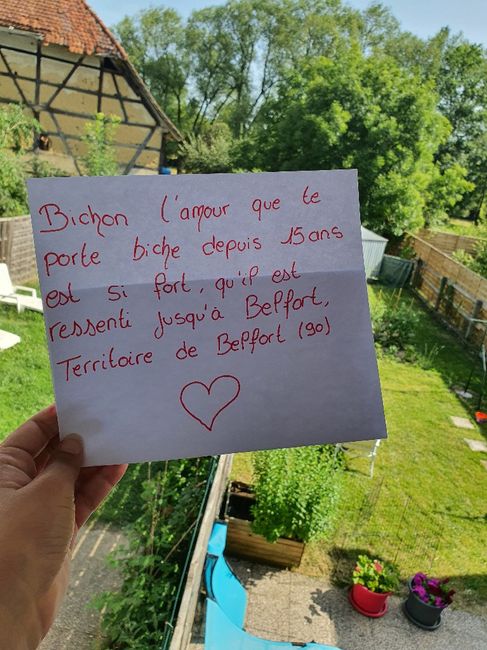 Bichon l'amour que te
porte biche depuis 15 ans
est si fort, qu'il est
ressenti jusqu'à Belfort,
Territoire de Belfort (90)